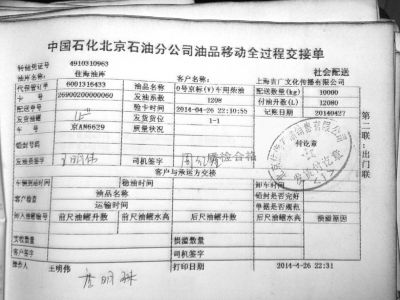 中国石化北京石油分公司油品移动全过程交接单
转储凭证号 4910310963 社会配送
油库名称: 佳海油库 客户名称: 上海吉广文化传播有限公司
代保管订单 6001316433 油品名称 0号京标(Ⅴ)车用柴油 配送数量(kg) 10000
卡 号 26900200000060 发油系数 1208 付油升数(L) 12080
配送单号 验卡时间 2014-04-26 22:10:55 记账日期 20140427
发货油罐 发货货位 1-1
车 号 京AM6629 质量状况 付讫章
铅封号码
发油员签字 王明伟 司机签字 质检合格
客户与承运方交接
车辆到油时间 稳油时间 卸车时间
客户检查 油品名称 铅封是否完好
运输时间 单据是否规范
卸入油罐编号 前尺油罐升数 前尺油罐水高 后尺油罐升数 后尺油罐水高 损溢原因
实收数量 损溢数量
客户签字 司机签字
操作人 王明伟 打印日期 2014-4-26 22:31
第二联:出门联